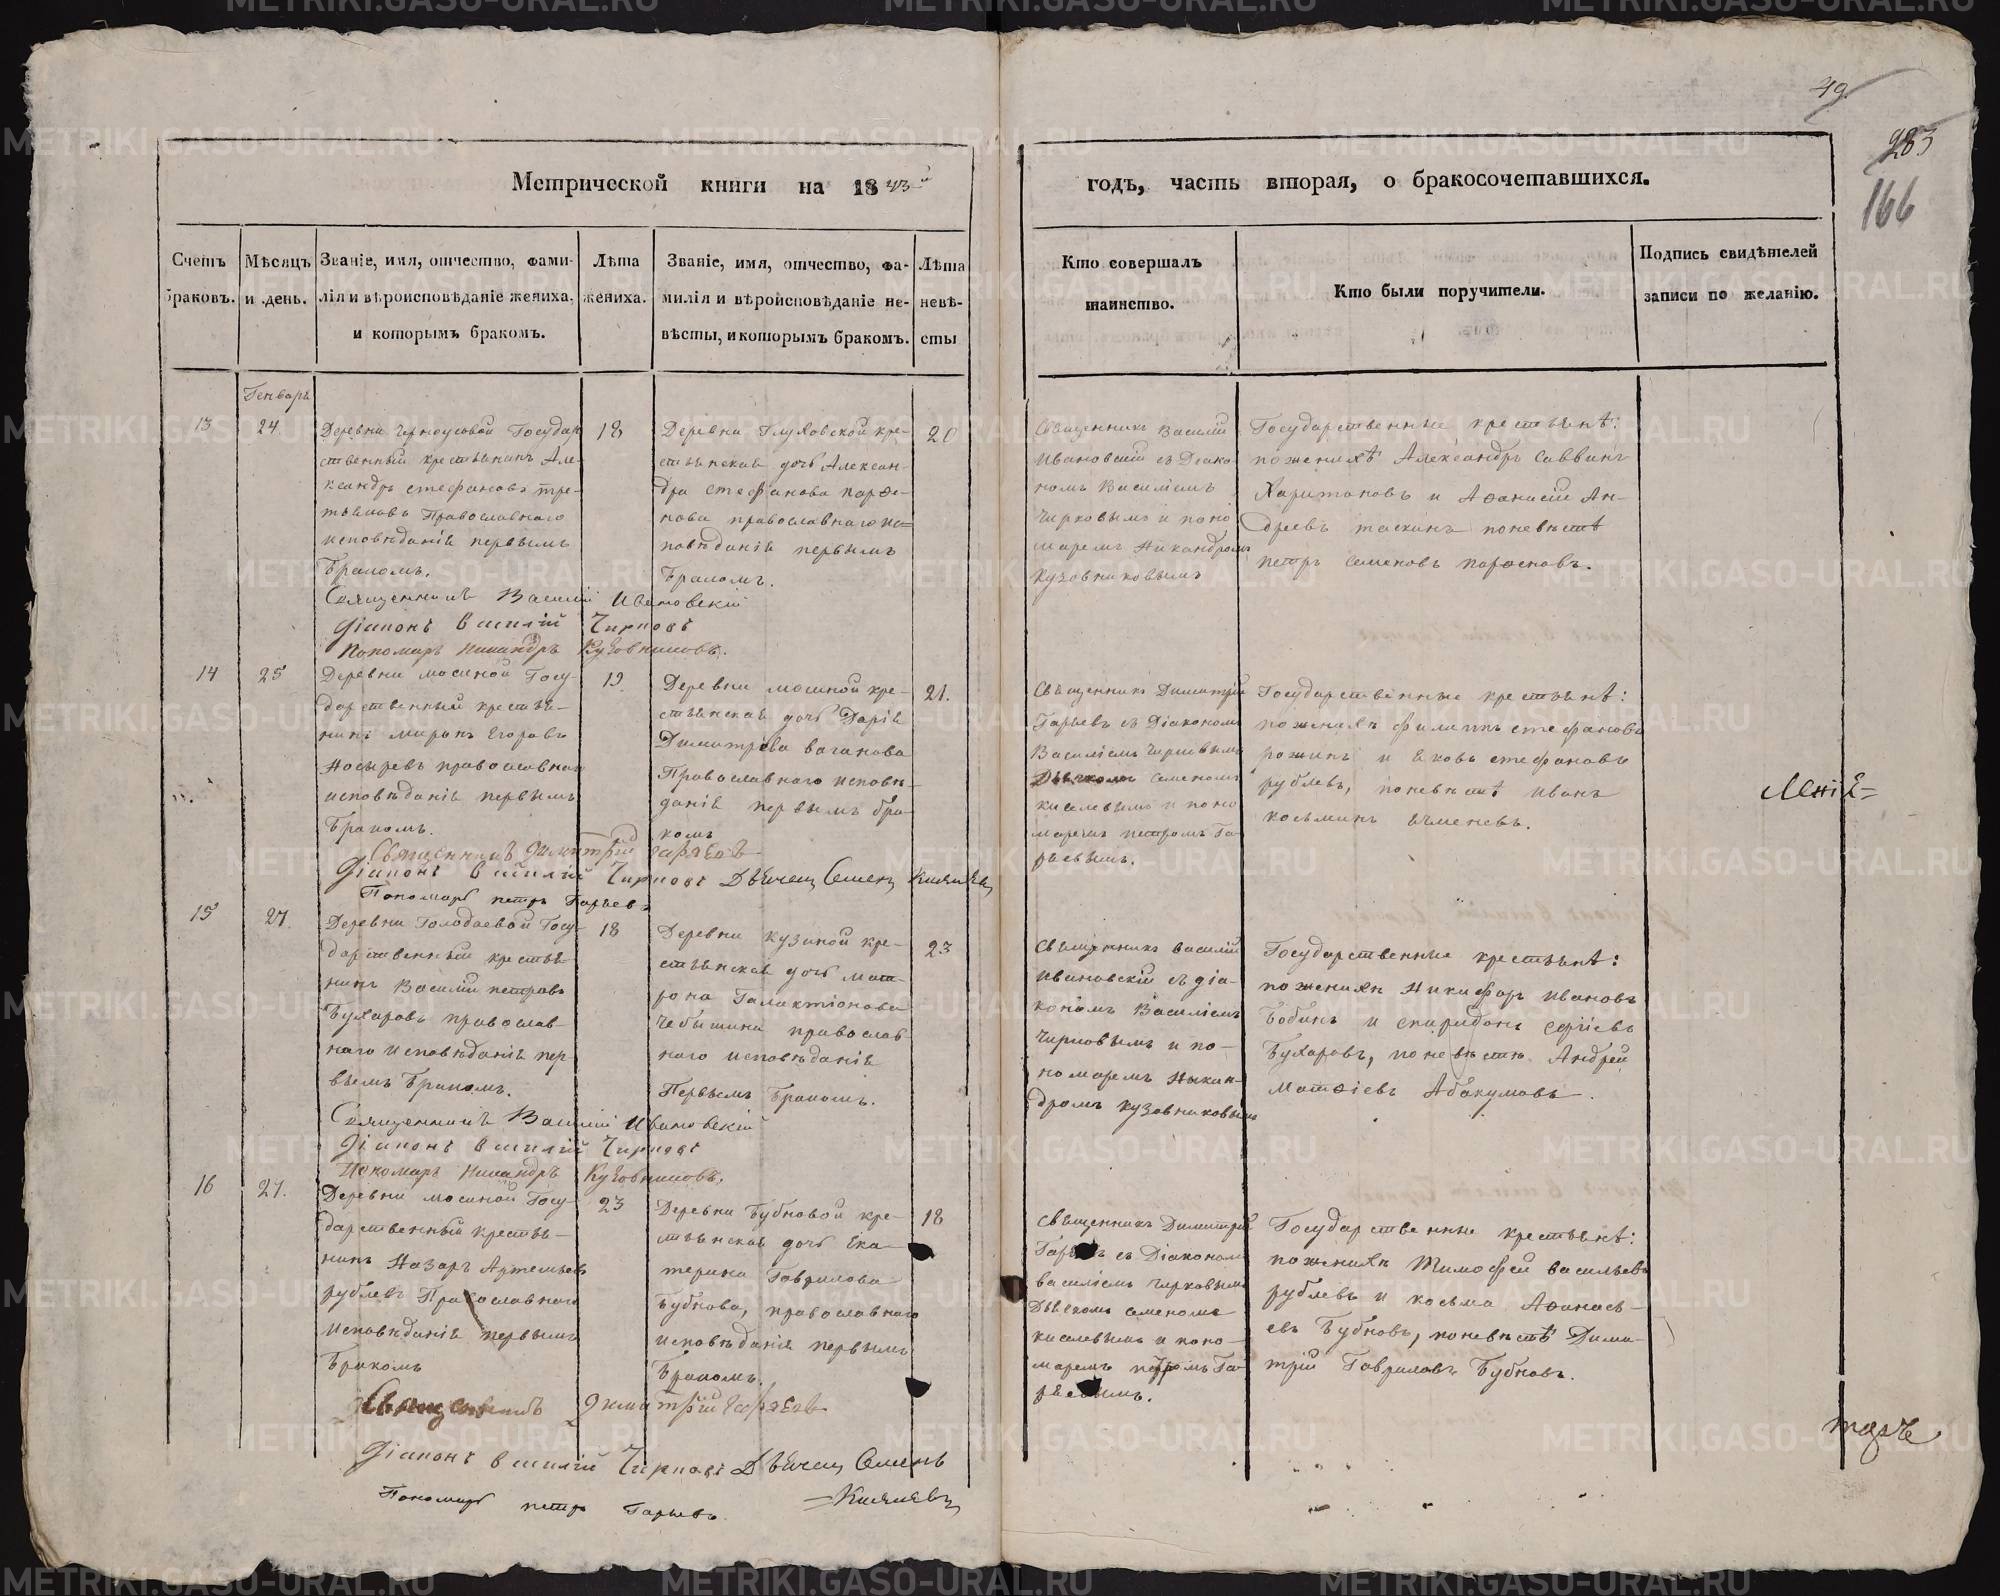 49.
283
166
Метрической книги на 1843й
годъ, часть вторая, о бракосочетавшихся.
Счетъ браковъ.
Мѣсяцъ и день.
Званіе, имя, отчество, фами-
лія и вѣроисповѣданіе жениха,
и которымъ бракомъ.
Лѣта
жениха.
Званіе, имя, отчество, фа-
милія и вѣроисповѣданіе не-
вѣсты, и которымъ бракомъ.
Лѣта
невѣ-
сты
Кто совершалъ
таинство.
Кто были поручители.
Подпись свидѣтелей
записи по желанію.
Генварь
13
24
Деревни Черноусовой Государ
ственный крестьянинъ Але-
ксандръ Стефановъ Тре-
тьяковъ Православнаго
исповѣданія первымъ
бракомъ.
18
Деревни Глуховской кре-
стьянская дочь Алексан-
дра Стефанова Парѳе-
нова православнаго ис-
повѣданія первымъ
бракомъ.
20
Священникъ Василій
Ивановскій съ Діако
номъ Василіемъ
Чирковымъ и поно
маремъ Никандромъ
Кузовниковымъ
Государственные крестьянѣ:
по женихѣ Александръ Саввинъ
Харитоновъ и Аѳанасій Ан-
дреевъ Таскинъ по невѣстѣ
Петръ Семеновъ Парѳеновъ.
Священникъ Василій Ивановскій
Діаконъ Василій Чирковъ
Пономарь Никандръ Кузовниковъ.
14
25
Деревни Мосиной Госу-
дарственный крестья-
нинъ Миронъ Егоровъ
Носыревъ православнаго
исповѣданія первымъ
бракомъ.
19
Деревни Мосиной кре-
стьянская дочь Дарія
Димитріева Ваганова
Православнаго исповѣ
данія первымъ бра-
комъ
21.
Священникъ Димитрій
Гаряевъ съ Діакономъ
Василіемъ Чирковымъ
Дьячкомъ Семеномъ
Киселевымъ и поно
маремъ Петромъ Га-
ряевымъ.
Государственные крестьянѣ:
по женихѣ Филипъ Стефановъ
Рожинъ и Яковъ Стефановъ
Рублевъ, по невѣстѣ Иванъ
Косьминъ Ячменевъ.
Священникъ Димитрій Гаряевъ
Діаконъ Василій Чирковъ Дьячец Семенъ Киселевъ
Пономарь Петръ Гаряевъ
15
27.
Деревни Голодаевой Госу-
дарственный крестья
нинъ Василій Петровъ
Бухаровъ православ-
наго исповѣданія пер-
вымъ бракомъ.
18
Деревни Кузиной кре-
стьянская дочь Мат-
рона Галактіонова
Чебыкина православ
наго исповѣданія
Первымъ Бракомъ.
23
Священникъ Василій
Ивановскій съ діа-
кономъ Василіемъ
Чирковымъ и по-
номаремъ Никан-
дромъ Кузовниковымъ
Государственные крестьянѣ:
по женихѣ Никифоръ Ивановъ
Бобинъ и Спиридонъ Сергіевъ
Бухаровъ, по невѣстѣ Андрей
Матѳіевъ Абакумовъ.
Священникъ Василій Ивановскій
Діаконъ Василій Чирковъ
Пономарь Никандръ Кузовниковъ.
16
27.
Деревни Мосиной Госу-
дарственный крестья-
нинъ Назаръ Артемьевъ
Рублевъ Православнаго
исповѣданія первымъ
Бракомъ
23
Деревни Бубновой кре-
стьянская дочь Ека-
терина Гаврилова
Бубнова, православнаго
исповѣданія первымъ
Бракомъ.
18
Священникъ Димитрій
Гаряевъ съ Діакономъ
Василіемъ Чирковымъ
Дьячкомъ Семеномъ
Киселевымъ и поно-
маремъ Петромъ Га-
ряевымъ.
Государственные крестьянѣ:
по женихѣ Тимофей Васильевъ
Рублевъ и Косьма Аѳанась-
евъ Бубновъ, по невѣстѣ Дими-
трій Гавриловъ Бубновъ.
Священникъ Димитрій Гаряевъ
Діаконъ Василій Чирковъ Дьячец Семенъ
Киселевъ
Пономарь Петръ Гаряевъ.
METRIKI.GASO-URAL.RU